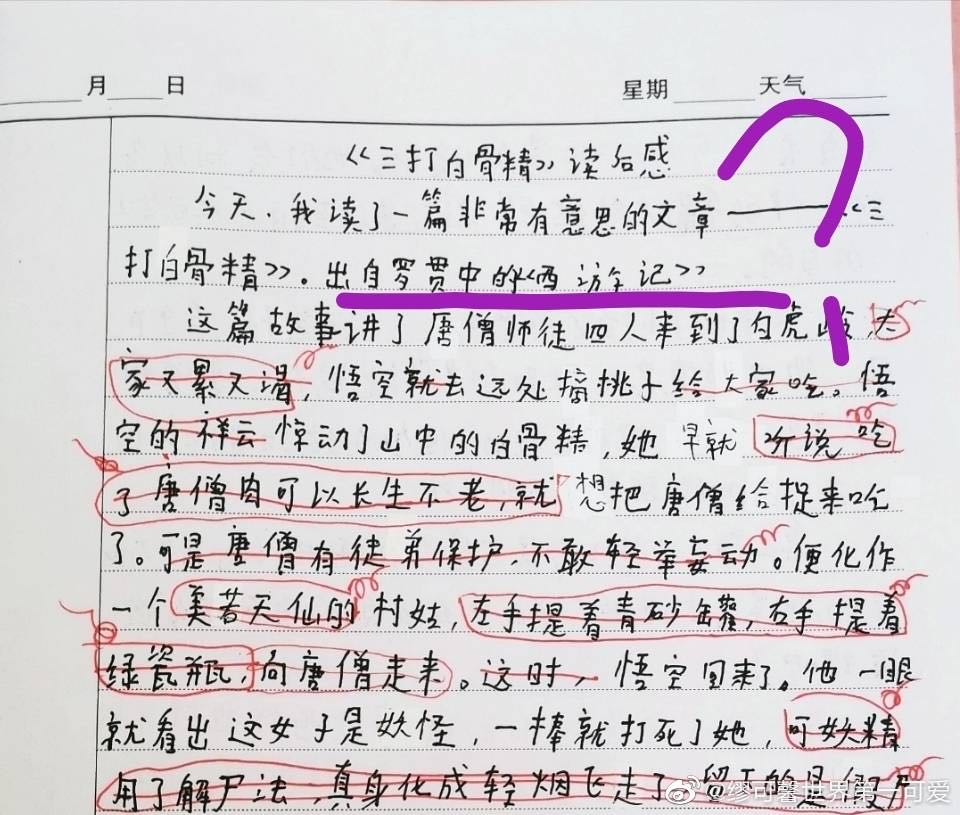 月 日 星期 天气
《三打白骨精》读后感
今天.我读了一篇非常有意思的文章——《三
打白骨精》。出自罗贯中的《西游记》
这篇故事讲了唐僧师徒四人来到了白虎岭,大
家又累又渴,悟空就去远处摘桃子给大家吃。悟
空的祥云惊动了山中的白骨精,她早就听说吃
了唐僧肉可以长生不老,就想把唐僧给捉来吃
了。可是唐僧有徒弟保护,不敢轻举妄动。便化作
一个美若天仙的村姑,左手提着青砂罐,右手提着
绿瓷瓶,向唐僧走来。这时,悟空回来了。他一眼
就看出这女子是妖怪,一棒就打死了她,可妖精
用了解尸法,真身化成轻烟飞走了,留下的是假尸
@缪可馨世界第一可爱